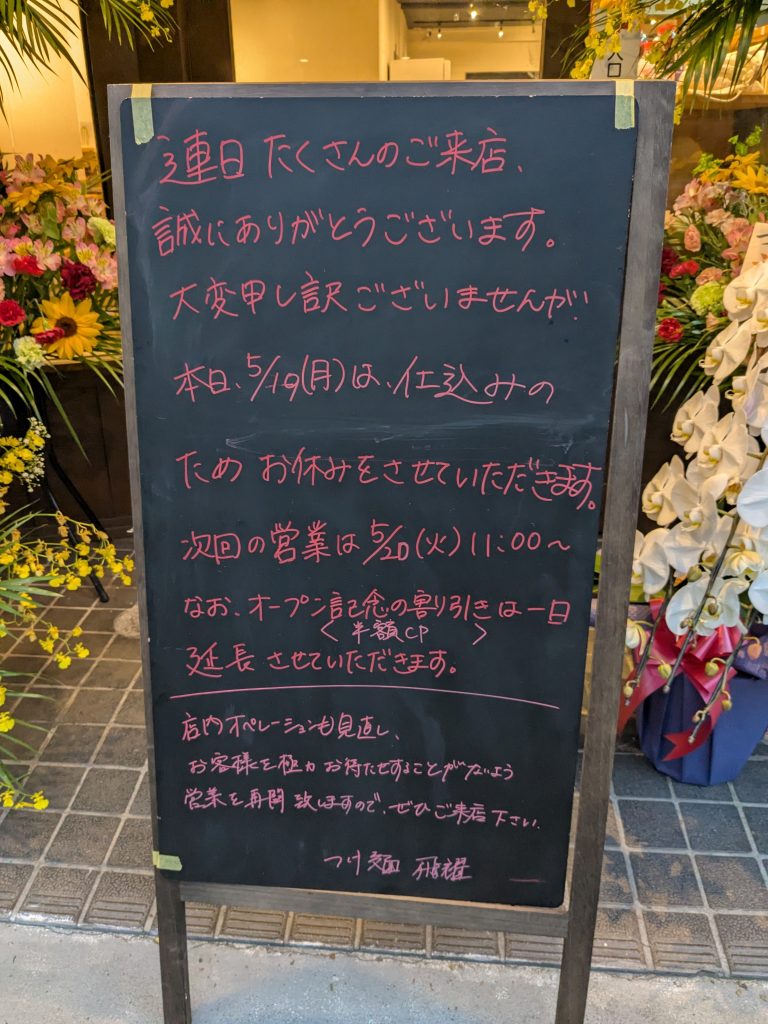 入口
連日 たくさんのご来店、
誠にありがとうございます。
大変申し訳ございませんが
本日、5/19(月)は、仕込みの
ため お休みをさせていただきます。
次回の営業は 5/20(火) 11:00〜
なお、オープン記念の割り引きは一日
<半額CP>
延長させていただきます。
店内オペレーションも見直し、
お客様を極力お待たせすることがないよう
営業を再開致しますので、ぜひご来店下さい。
つけ麺